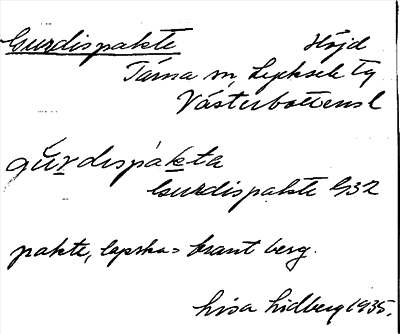 Gurdispakte Höjd
Tärna sn, Lycksele tg
Västerbottensl
gu̇rdispáḵta
Gurdispakte G32
pakte, lapska = brant berg.
Lisa Lidberg 1935.